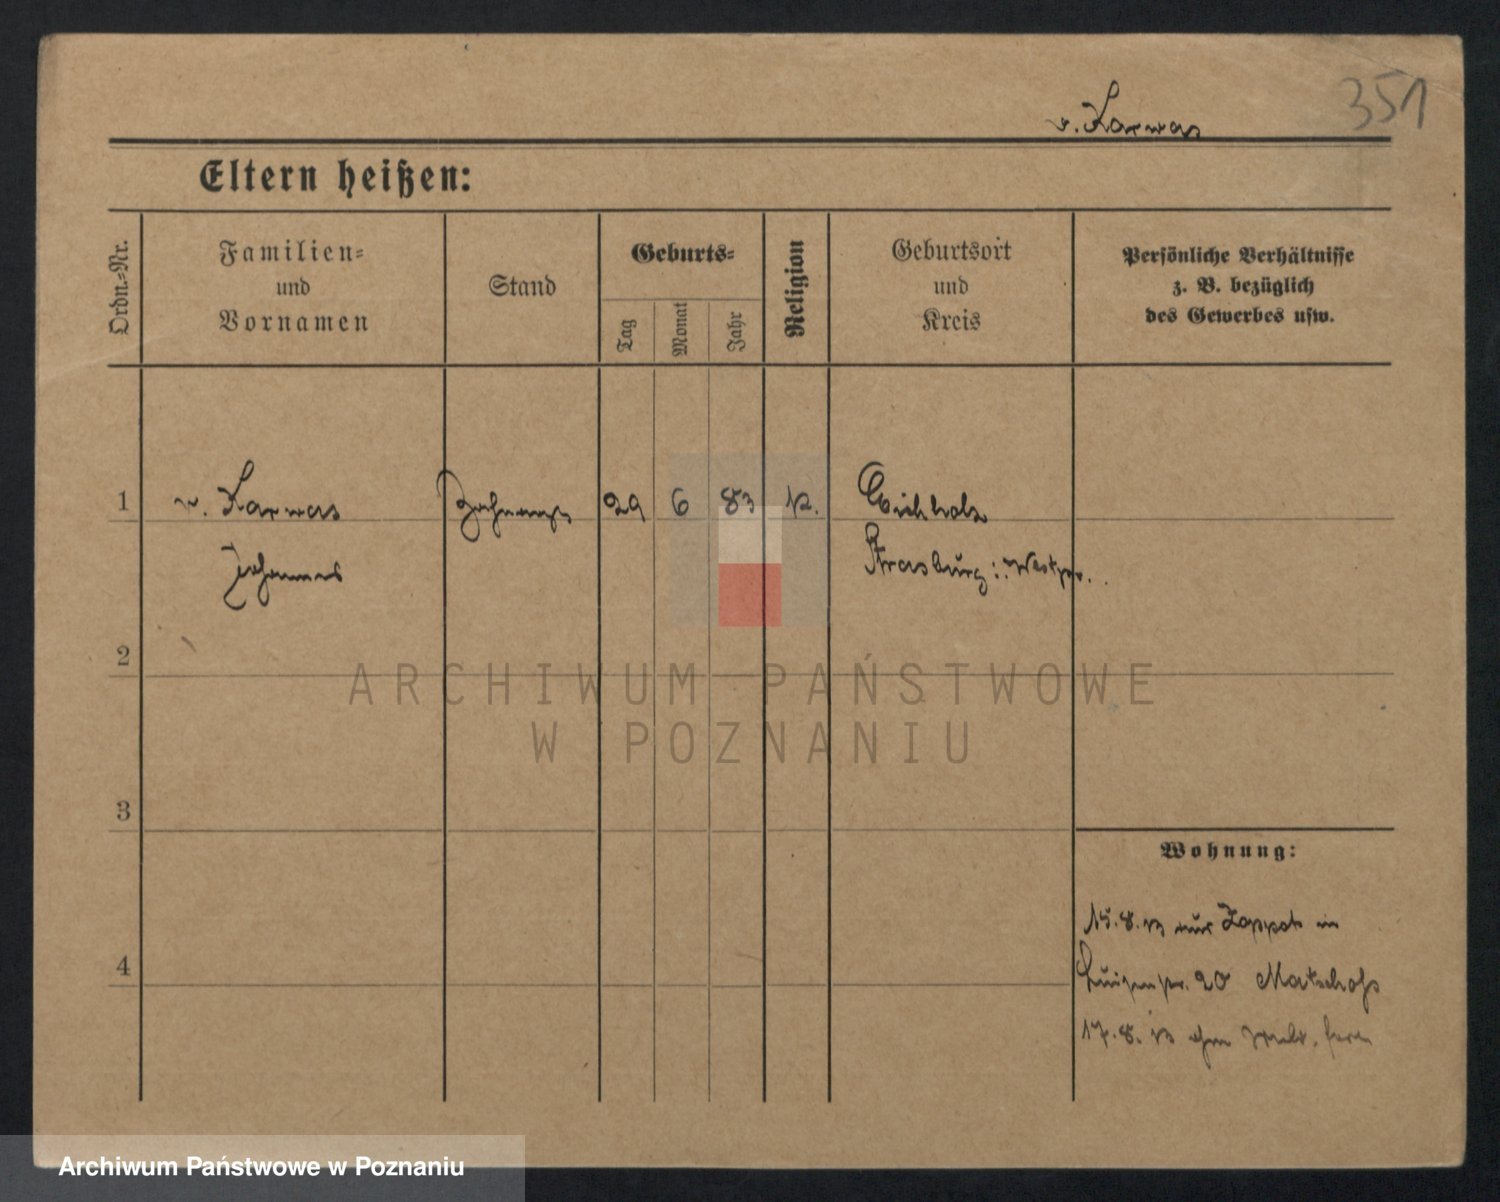 351
v. Karwas
Eltern heißen:
Ordn.-Nr.
Familien-
und
Vornamen
Stand
Geburts-
Tag
Monat
Jahr
Religion
Geburtsort
und
Kreis
Persönliche Verhältnisse
z. B. bezüglich
des Gewerbes usw.
1
v. Karwas
29
6
83
k.
Eichholz
Johannes
Strasburg : Westpr.
2
ARCHIWUM PAŃSTWOWE
W POZNANIU
3
Wohnung:
15.8.13 aus Zoppot in
4
Luisenstr. 20 Matschoß
17.8.13
Archiwum Państwowe w Poznaniu